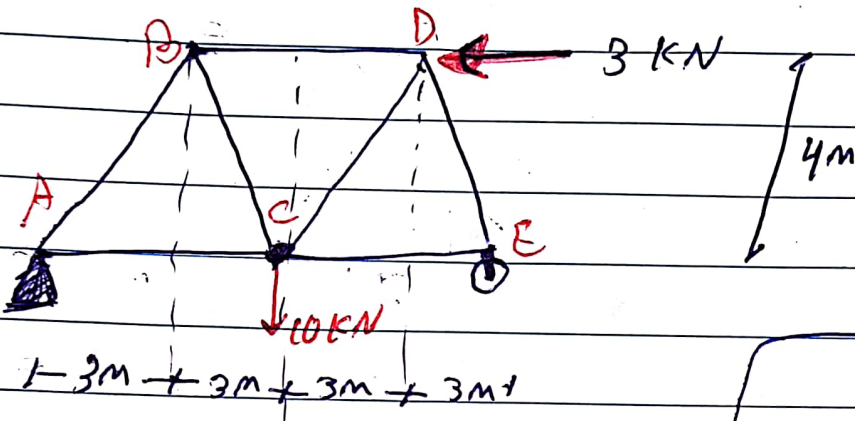 B D 3 KN
4m
A C E
10KN
3m 3m 3m 3m